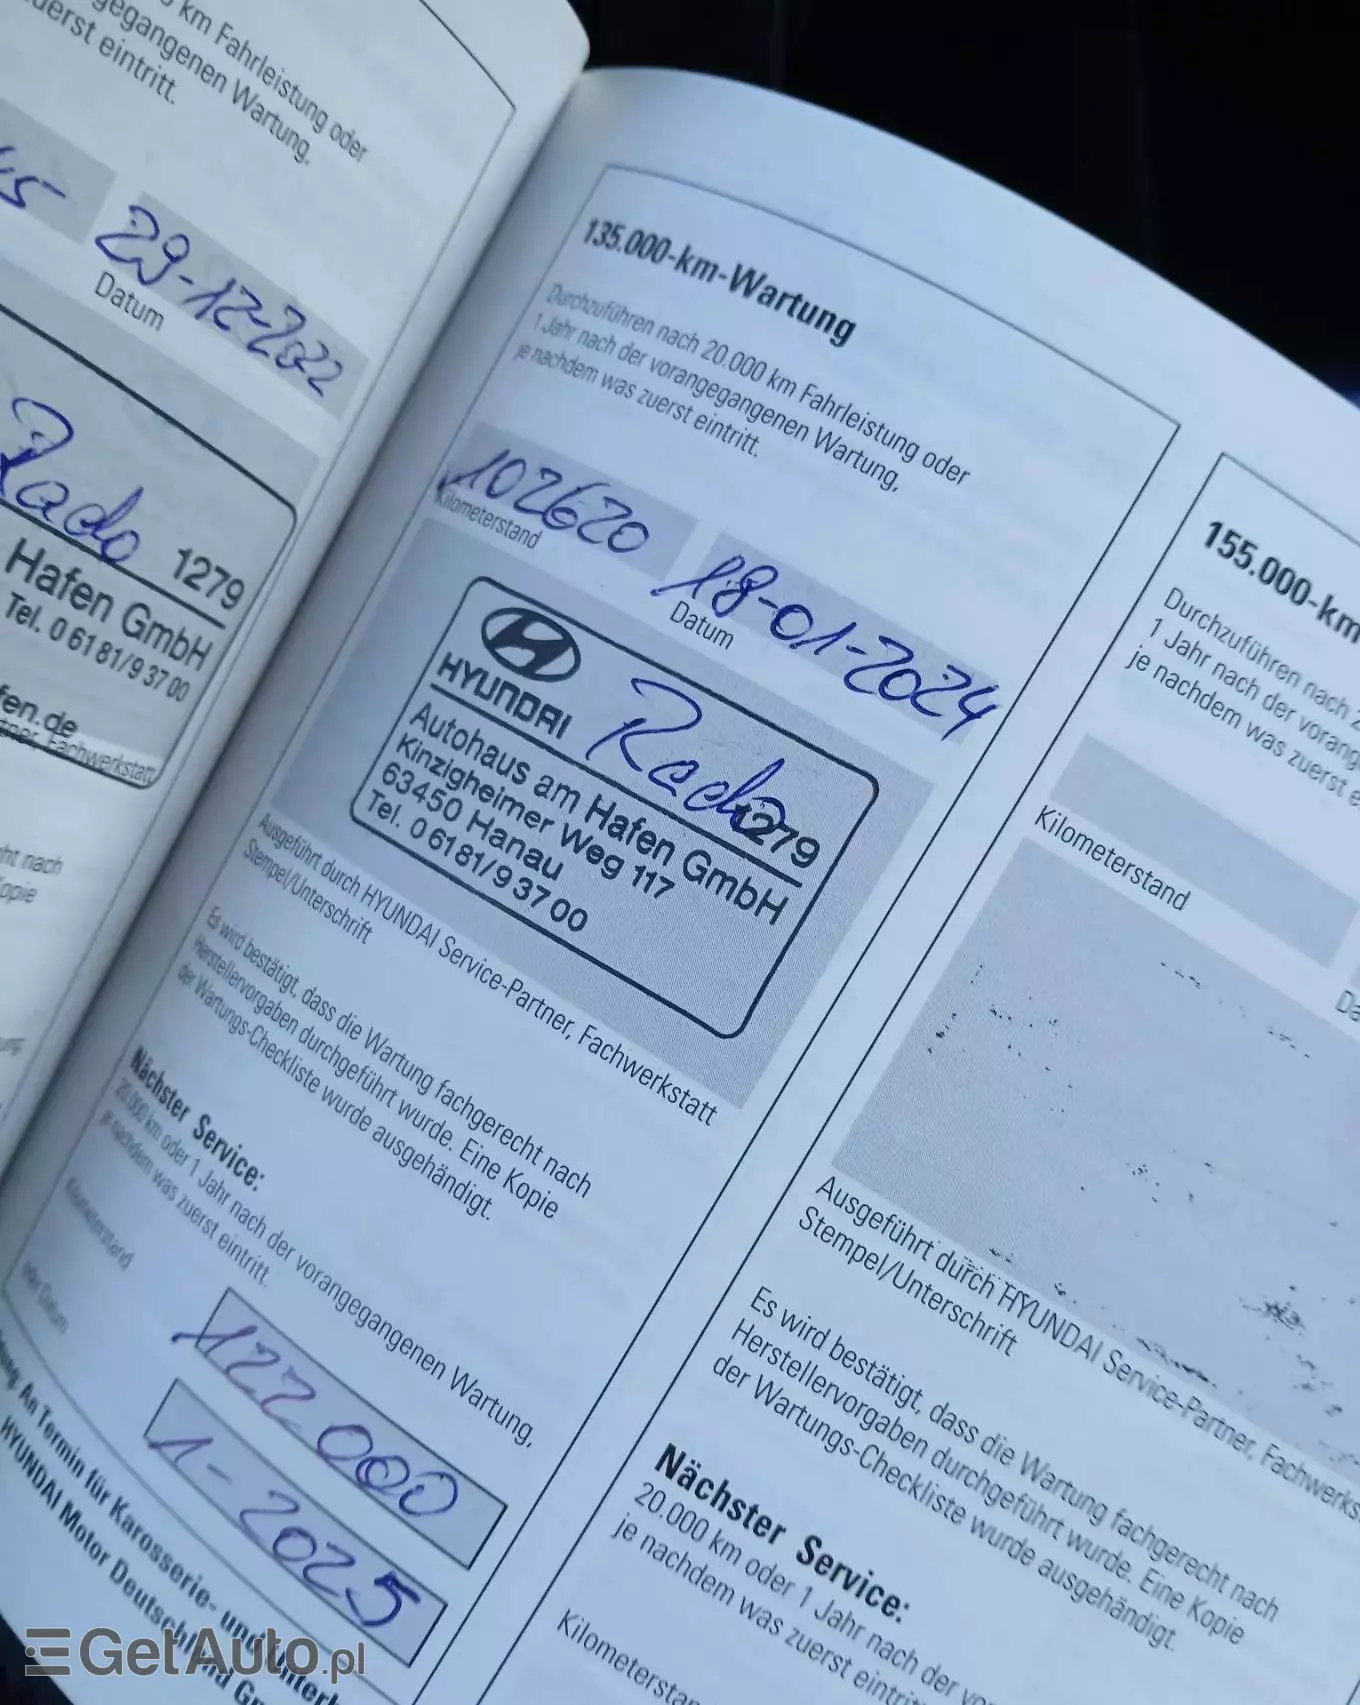 km Fahrleistung oder
gegangenen Wartung,
uerst eintritt.
29-12-2022
Datum
Rado 1279
Hafen GmbH
Tel. 0 61 81/9 37 00
fen.de
tner, Fachwerkstatt
ht nach
Kopie
135.000-km-Wartung
Durchzuführen nach 20.000 km Fahrleistung oder
1 Jahr nach der vorangegangenen Wartung,
je nachdem was zuerst eintritt.
102620 18-01-2024
Kilometerstand Datum
HYUNDAI Rado 1279
Autohaus am Hafen GmbH
Kinzigheimer Weg 117
63450 Hanau
Tel. 0 61 81/9 37 00
Ausgeführt durch HYUNDAI Service-Partner, Fachwerkstatt
Stempel/Unterschrift
Es wird bestätigt, dass die Wartung fachgerecht nach
Herstellervorgaben durchgeführt wurde. Eine Kopie
der Wartungs-Checkliste wurde ausgehändigt.
Nächster Service:
20.000 km oder 1 Jahr nach der vorangegangenen Wartung,
je nachdem was zuerst eintritt.
Kilometerstand 122000
oder Datum 1-2025
An Termin für Karosserie- und Unter
HYUNDAI Motor Deutschland G
155.000-km
Durchzuführen nach 2
1 Jahr nach der vorang
je nachdem was zuerst e
Kilometerstand Da
Ausgeführt durch HYUNDAI Service-Partner, Fachwerks
Stempel/Unterschrift
Es wird bestätigt, dass die Wartung fachgerecht nach
Herstellervorgaben durchgeführt wurde. Eine Kopie
der Wartungs-Checkliste wurde ausgehändigt.
Nächster Service:
20.000 km oder 1 Jahr nach der vo
je nachdem was zuerst eintritt
Kilometerstan
GetAuto.pl